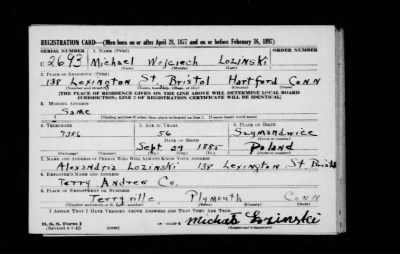 REGISTRATION CARD—(Men born on or after April 28, 1877 and on or before February 16, 1897)
SERIAL NUMBER 1. NAME (Print) ORDER NUMBER
U 2693 Michael Wojciech Lozinski
(First) (Middle) (Last)
2. PLACE OF RESIDENCE (Print)
138 Lexington St. Bristol Hartford Conn
(Number and street) (Town, township, village, or city) (County) (State)
[THE PLACE OF RESIDENCE GIVEN ON THE LINE ABOVE WILL DETERMINE LOCAL BOARD
JURISDICTION; LINE 2 OF REGISTRATION CERTIFICATE WILL BE IDENTICAL]
3. MAILING ADDRESS
Same
[Mailing address if other than place indicated on line 2. If same insert word same]
4. TELEPHONE 5. AGE IN YEARS 6. PLACE OF BIRTH
7386 56 Szymanowice
DATE OF BIRTH
Sept. 29 1885 Poland
(Mo.) (Day) (Yr.)
7. NAME AND ADDRESS OF PERSON WHO WILL ALWAYS KNOW YOUR ADDRESS
Alexandria Lozinski 138 Lexington St Bristol
8. EMPLOYER'S NAME AND ADDRESS
Terry Andrew Co.
9. PLACE OF EMPLOYMENT OR BUSINESS
Terryville, Plymouth Conn
(Number and street or R. F. D. number) (Town) (County) (State)
I AFFIRM THAT I HAVE VERIFIED ABOVE ANSWERS AND THAT THEY ARE TRUE.
D. S. S. Form 1
Michał Łozinski
(Registrant's signature)